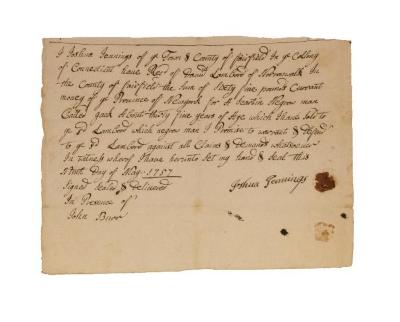 I Joshua Jennings of ye Town & County of fairfield In ye Collony
of Connecticut have Recd of David Lambord of Norwalk In
the County of fairfield the Sum of Sixty five pounds Currant
money of ye Province of Newyork for A Sertin Negrow man
Called Jack About thirty five years of Age which I have Sold to
ye sd Lambord which negrow man I Promise to warrant & defend
to ye sd Lambord against all Claims & Demands whatsoever
In witness whereof I have hereunto set my hand & Seal this
Day of May 1757
Signed Sealed & delivered
In Presence of
John Burr
Joshua Jennings